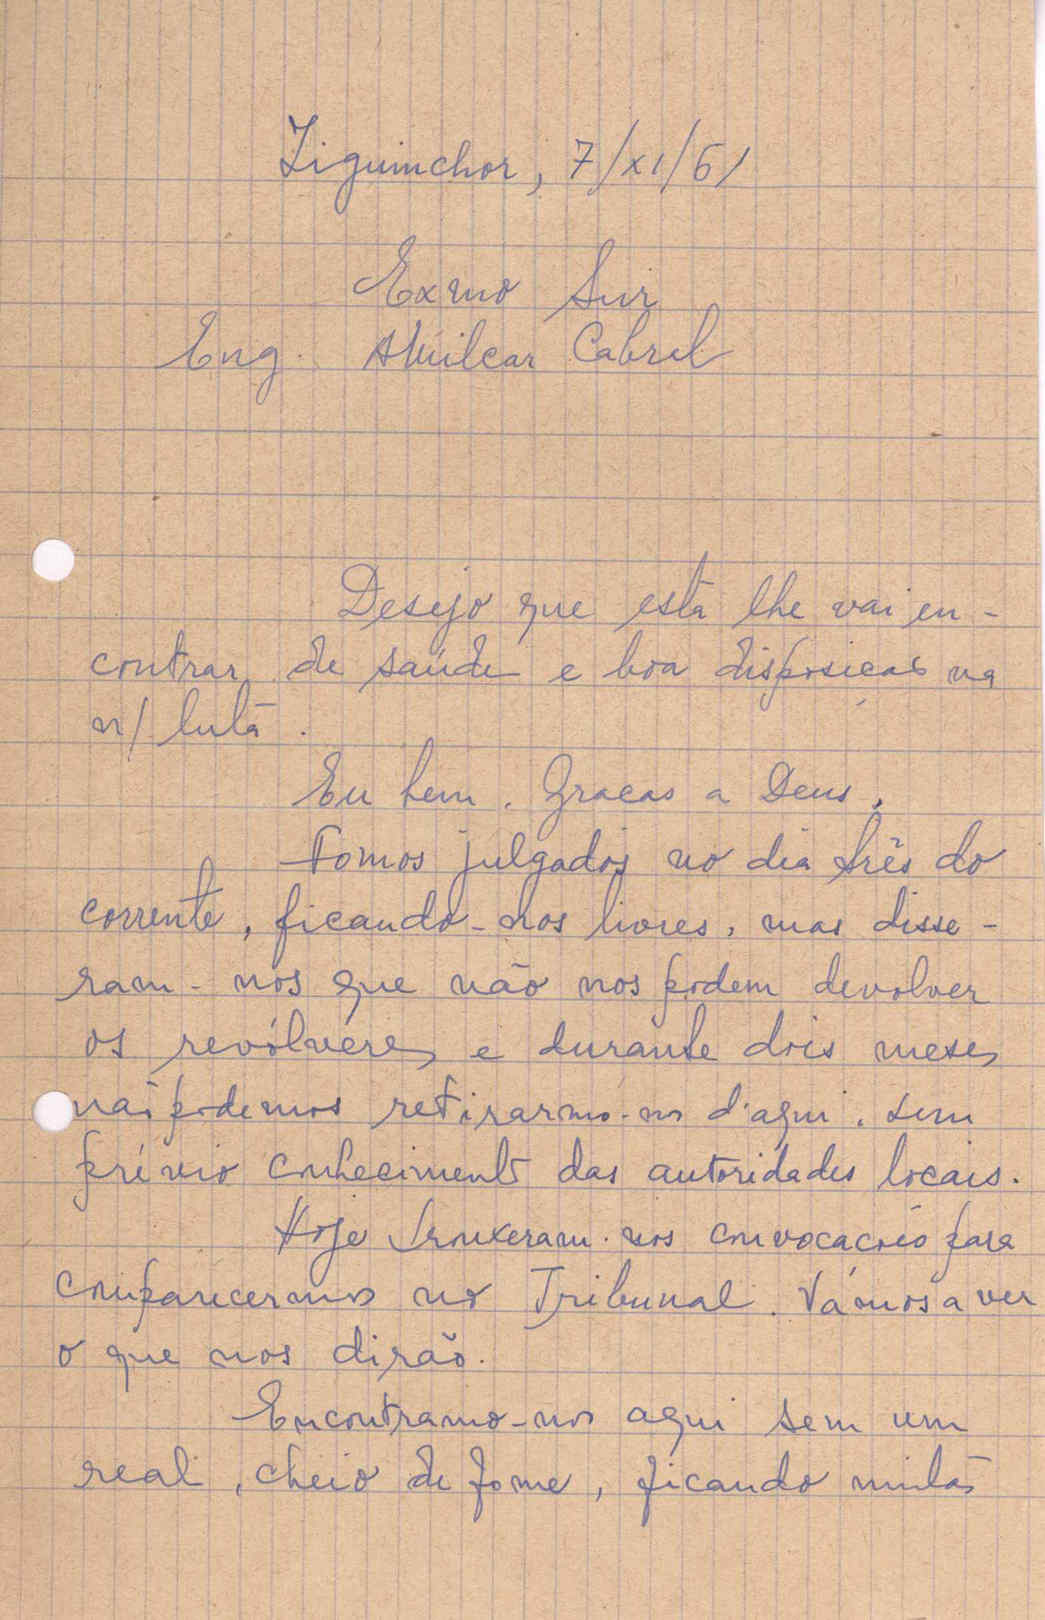 Ziguinchor, 7/XI/61
Exmo Snr
Eng. Amilcar Cabral
Desejo que esta lhe vai en-
contrar de saúde e boa disposição na
n/ luta.
Eu bem. Graças a Deus.
Fomos julgados no dia três do
corrente, ficando-nos livres, mas disse-
ram-nos que não nos podem devolver
os revólveres e durante dois meses
não podemos retirarmo-nos d'aqui, sem
prévio conhecimento das autoridades locais.
Hoje trouxeram-nos convocações para
comparecermos no Tribunal. Vámos a ver
o que nos dirão.
Encontramo-nos aqui sem um
real, cheio de fome, ficando muitas